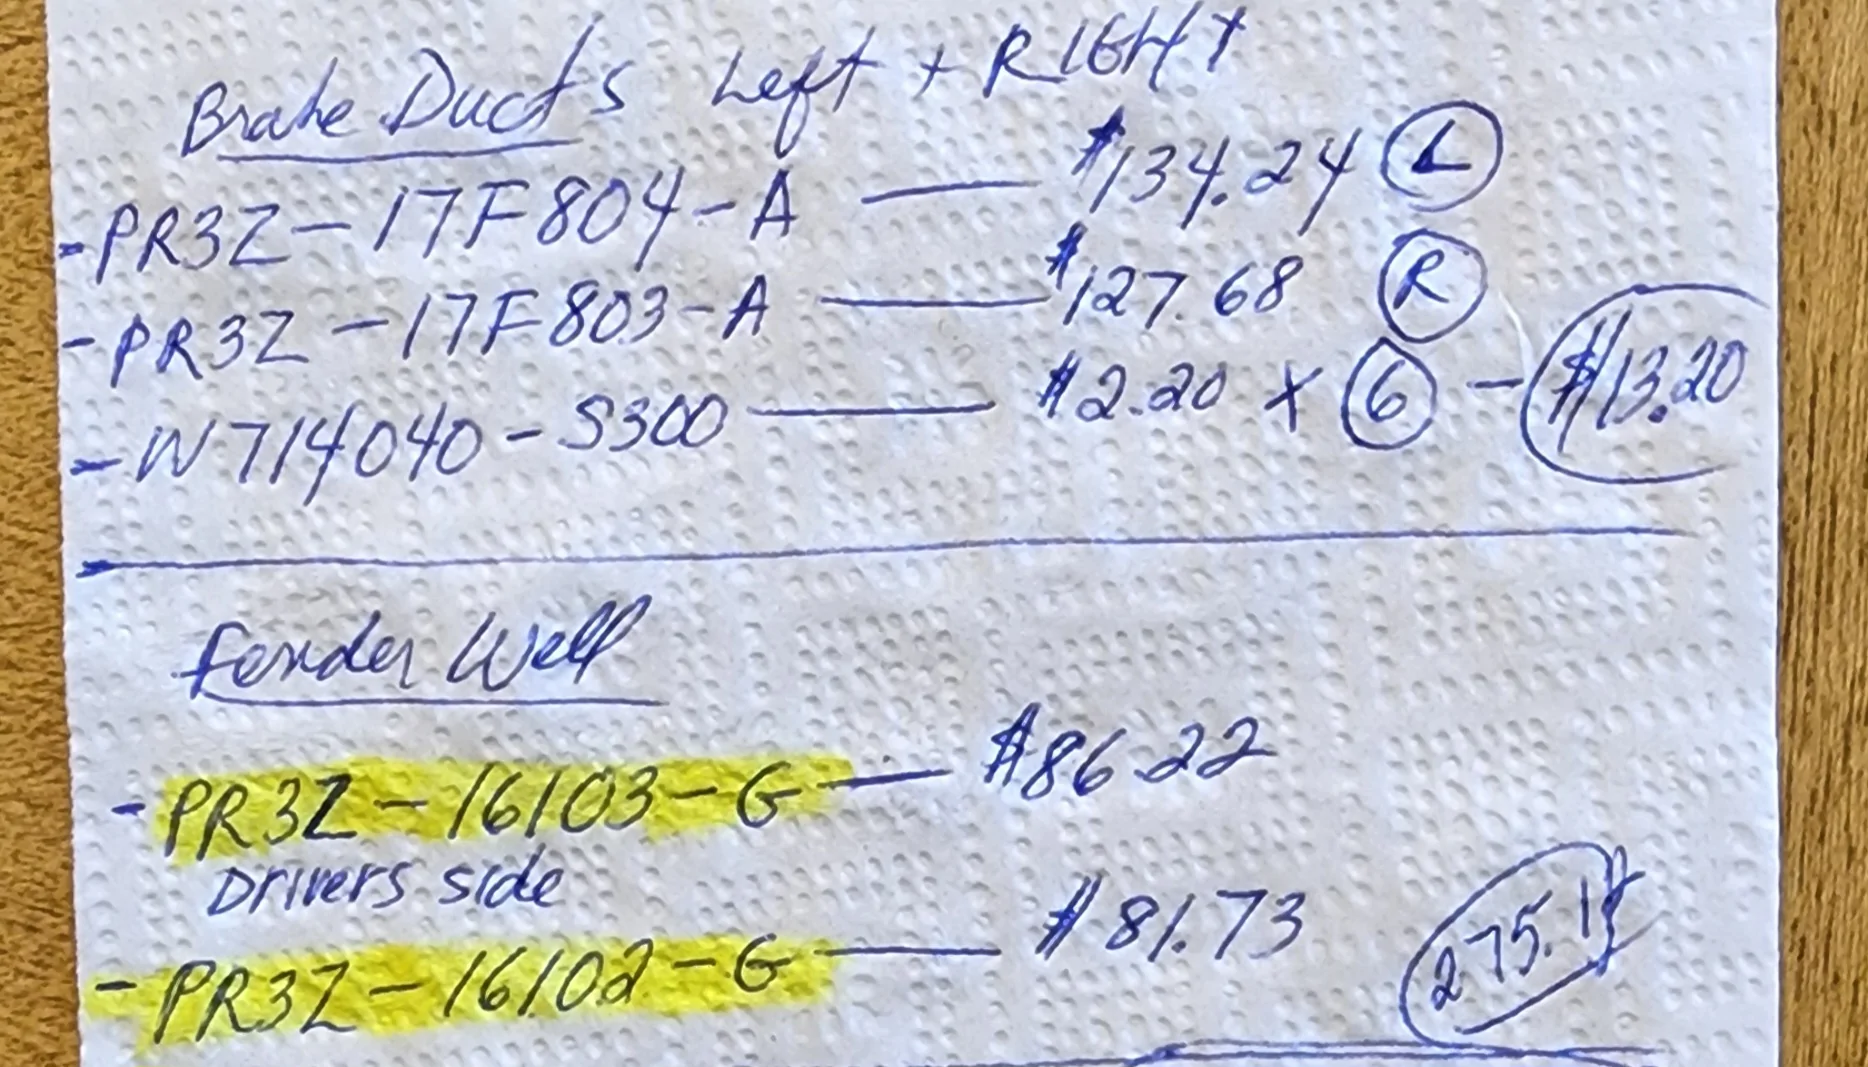 Brake Ducts Left + RIGHT
- PR3Z - 17F804 - A — $134.24 L
- PR3Z - 17F803 - A — $127.68 R
- W714040 - S300 — $2.20 x 6 - $13.20
Fender Well
- PR3Z - 16103 - G — $86.22
Drivers side
- PR3Z - 16102 - G — $81.73